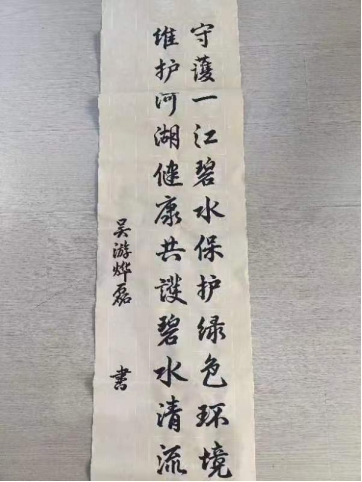 守護一江碧水保护绿色环境
维护河湖健康共護碧水清流
吴游烨磊 書